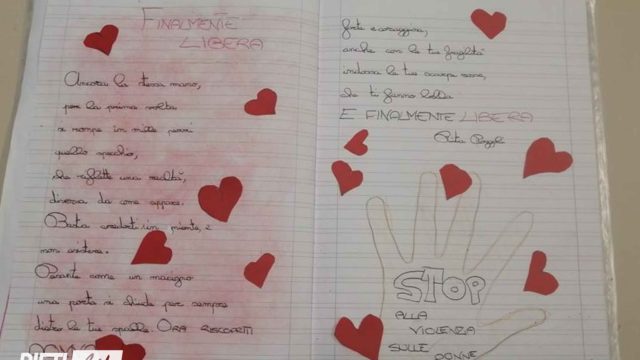 FINALMENTE
LIBERA
Ancora la stessa mano,
per la prima volta
si rompe in mille pezzi
quello specchio,
che riflette una realtà,
diversa da come appare.
Basta crederti in niente, e
non esistere.
Pesante come un macigno
una porta si chiude per sempre
dietro le tue spalle. ORA RISCOPRITI
forte e coraggiosa,
anche con le tue fragilità
indossa le tue scarpe rosse,
che ti fanno bella
E FINALMENTE LIBERA
STOP
ALLA
VIOLENZA
SULLE
DONNE
RIETI